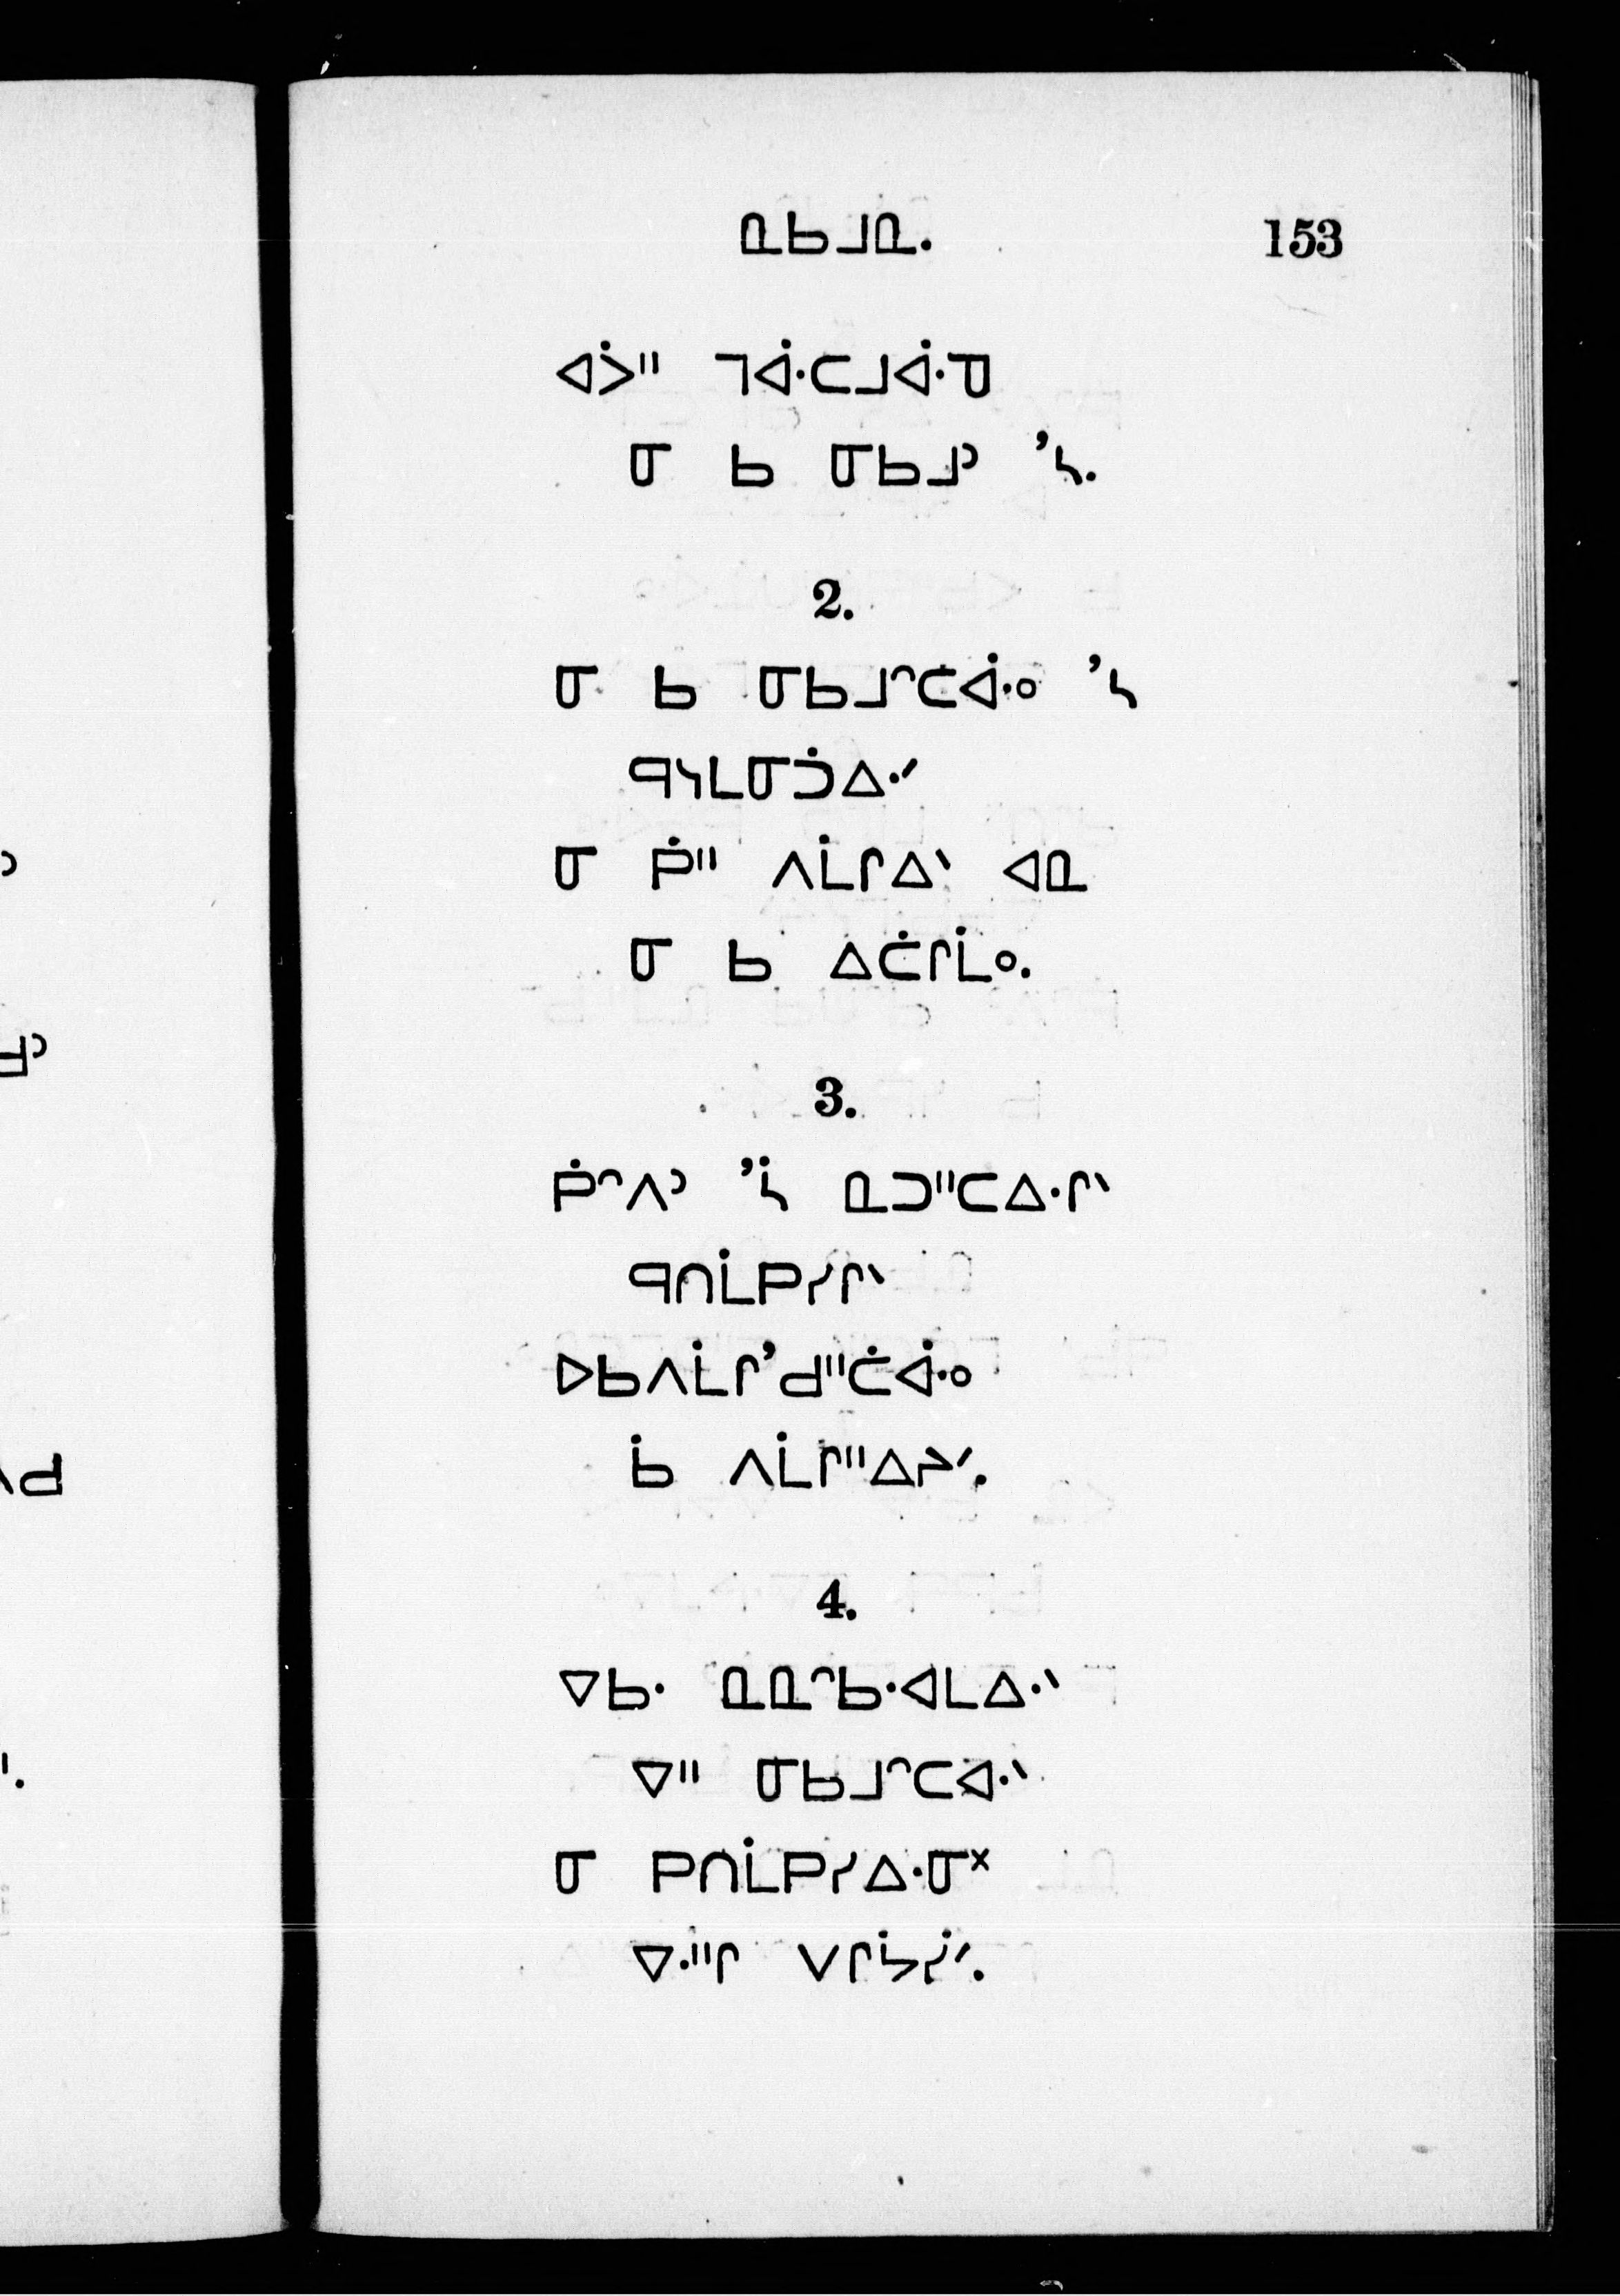 ᓇᑲᒧᓇ. 153
ᐊᐴᐦ ᒣᐚᑕᒧᐚᑫ
ᓂ ᑲ ᓂᑲᒧᐣ ’ᓴ.
2.
ᓂ ᑲ ᓂᑲᒧᐢᑖᐚᐤ ’ᓴ
ᑫᓭᒪᓂᑑᐃᐧᐟ
ᓂ ᑮᐦ ᐱᒫᒋᐃᐠ ᐊᓇ
ᓂ ᑲ ᐃᑖᒋᒫᐤ.
3.
ᑮᐢᐱᐣ ’ᓵ ᓇᑐᐦᑕᐃᐧᒋᐠ
ᑫᑎᒫᑭᓯᒋᐠ
ᐅᑲᐱᒫᒋ’ᑯᐦᑖᐚᐤ
ᑳ ᐱᒫᒋᐦᐃᔨᐟ.
4.
ᐁᑲᐧ ᓇᓇᐢᑲᐧᐊᒪᐃᐧᐠ
ᐁᐦ ᓂᑲᒧᐢᑕᐊᐧᐠ
ᓂ ᑭᑎᒫᑭᓯᐃᐧᓂᕽ
ᐁᐧᐦᒋ ᐯᒋᔮᓰᐟ.